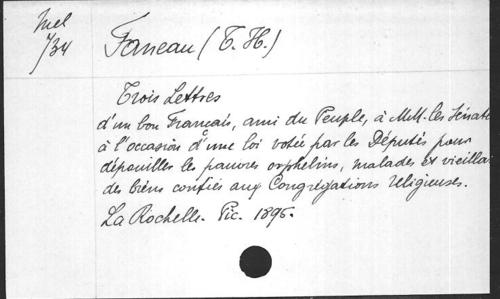 Mel
4/34
Faneau (T. H.)
Trois Lettres
d'un bon Français, ami du Peuple, à MM. les Sénate
à l'occasion d'une loi votée par les Députés pour
dépouiller les pauvres orphelins, malades et vieilla
des biens confiés aux Congrégations religieuses.
La Rochelle. Pic. 1896.